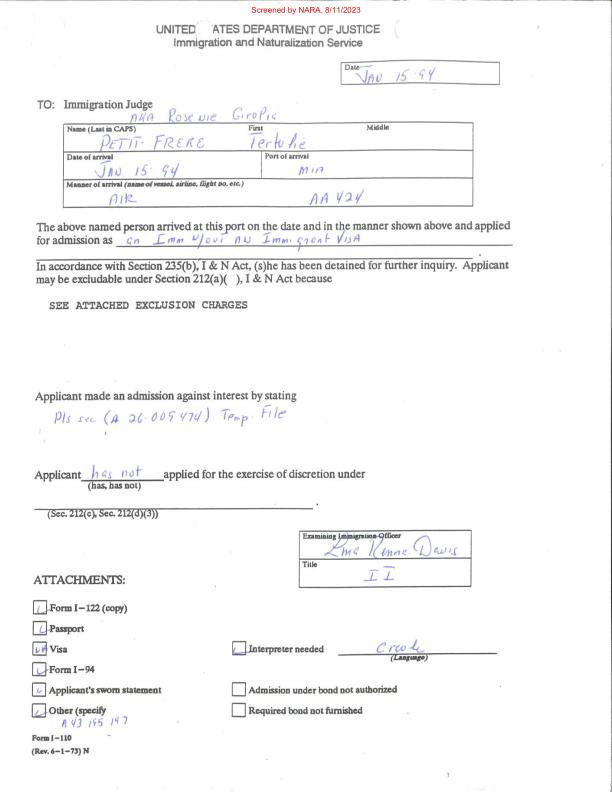 Screened by NARA, 8/11/2023
UNITED ATES DEPARTMENT OF JUSTICE
Immigration and Naturalization Service
Date
JAN 15·94
TO: Immigration Judge
AKA Rose nie Giropie
Name (Last in CAPS) First Middle
PETIT-FRERE Tertulie
Date of arrival Port of arrival
JAN 15·94 MIA
Manner of arrival (name of vessel, airline, flight no. etc.)
AIR AA 424
The above named person arrived at this port on the date and in the manner shown above and applied
for admission as an Imm w/out an Immigrant VISA
.
In accordance with Section 235(b), I & N Act, (s)he has been detained for further inquiry. Applicant
may be excludable under Section 212(a)( ), I & N Act because
SEE ATTACHED EXCLUSION CHARGES
Applicant made an admission against interest by stating
Pls see (A 26-005 474) Temp. File
Applicant has not applied for the exercise of discretion under
(has, has not)
.
(Sec. 212(c), Sec. 212(d)(3))
Examining Immigration Officer
Davis
Title
II
ATTACHMENTS:
Form I-122 (copy)
Passport
NA Visa Interpreter needed Creole
(Language)
Form I-94
Applicant's sworn statement Admission under bond not authorized
Other (specify Required bond not furnished
A 43 195 147
Form I-110
(Rev. 6-1-73) N